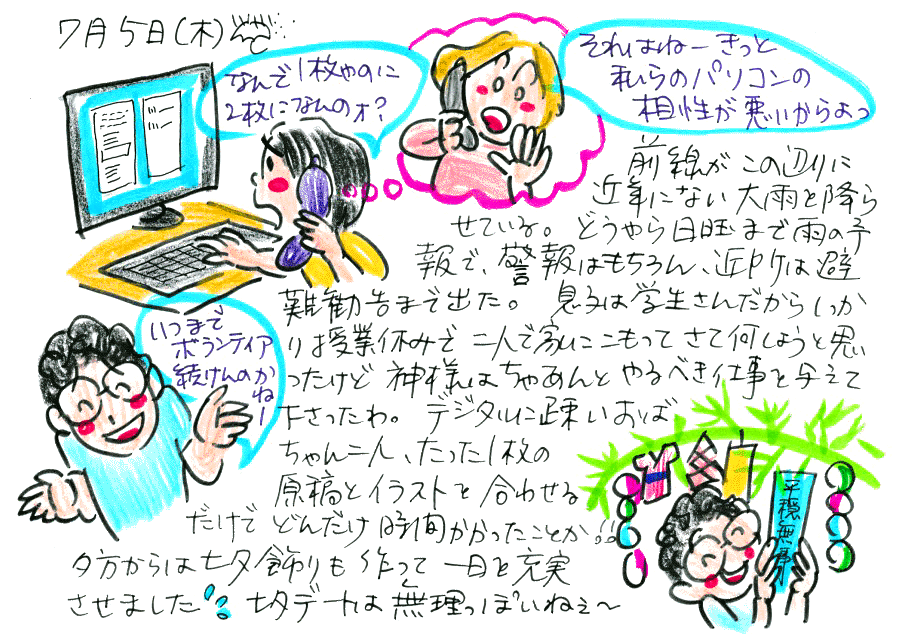 7月5日(木)
なんで1枚やのに
2枚になんのォ?
それはねーきっと
私らのパソコンの
相性が悪いからよっ
前線がこの辺りに
近年にない大雨を降ら
せている。どうやら日曜まで雨の予
報で、警報はもちろん、近所は避
難勧告まで出た。息子は学生さんだからしっか
り授業休みで二人で家にこもってさて何しようと思
ったけど神様はちゃあんとやるべき仕事を与えて
下さったわ。デジタルに疎いおば
ちゃん二人、たった1枚の
原稿とイラストを合わせる
だけでどんだけ時間かかったことか!!
夕方からは七夕飾りも作って一日を充実
させました 七夕デートは無理っぽいねぇ〜
いつまで
ボランティア
続けんのかねー
平穏無事